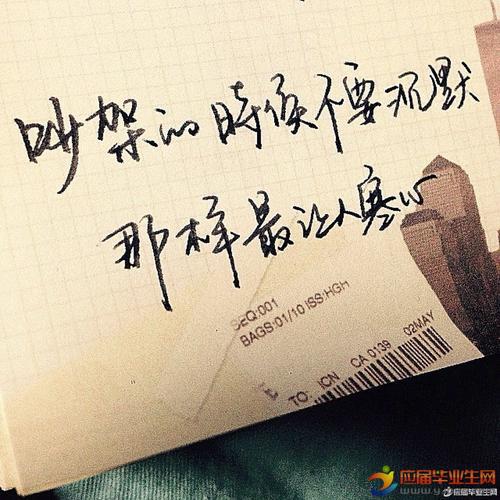 吵架的時候不要沉默
那样最让人寒心
SEQ:001
BAGS:01/10 ISS:HGH
TO: ICN CA 0139 02MAY
应届毕业生网
应届毕业生网